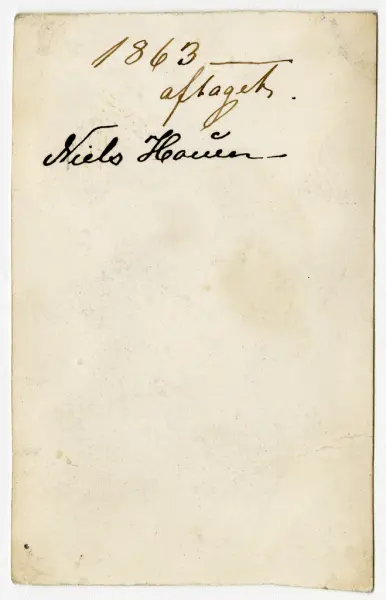 1863
aftaget.
Niels Hauen